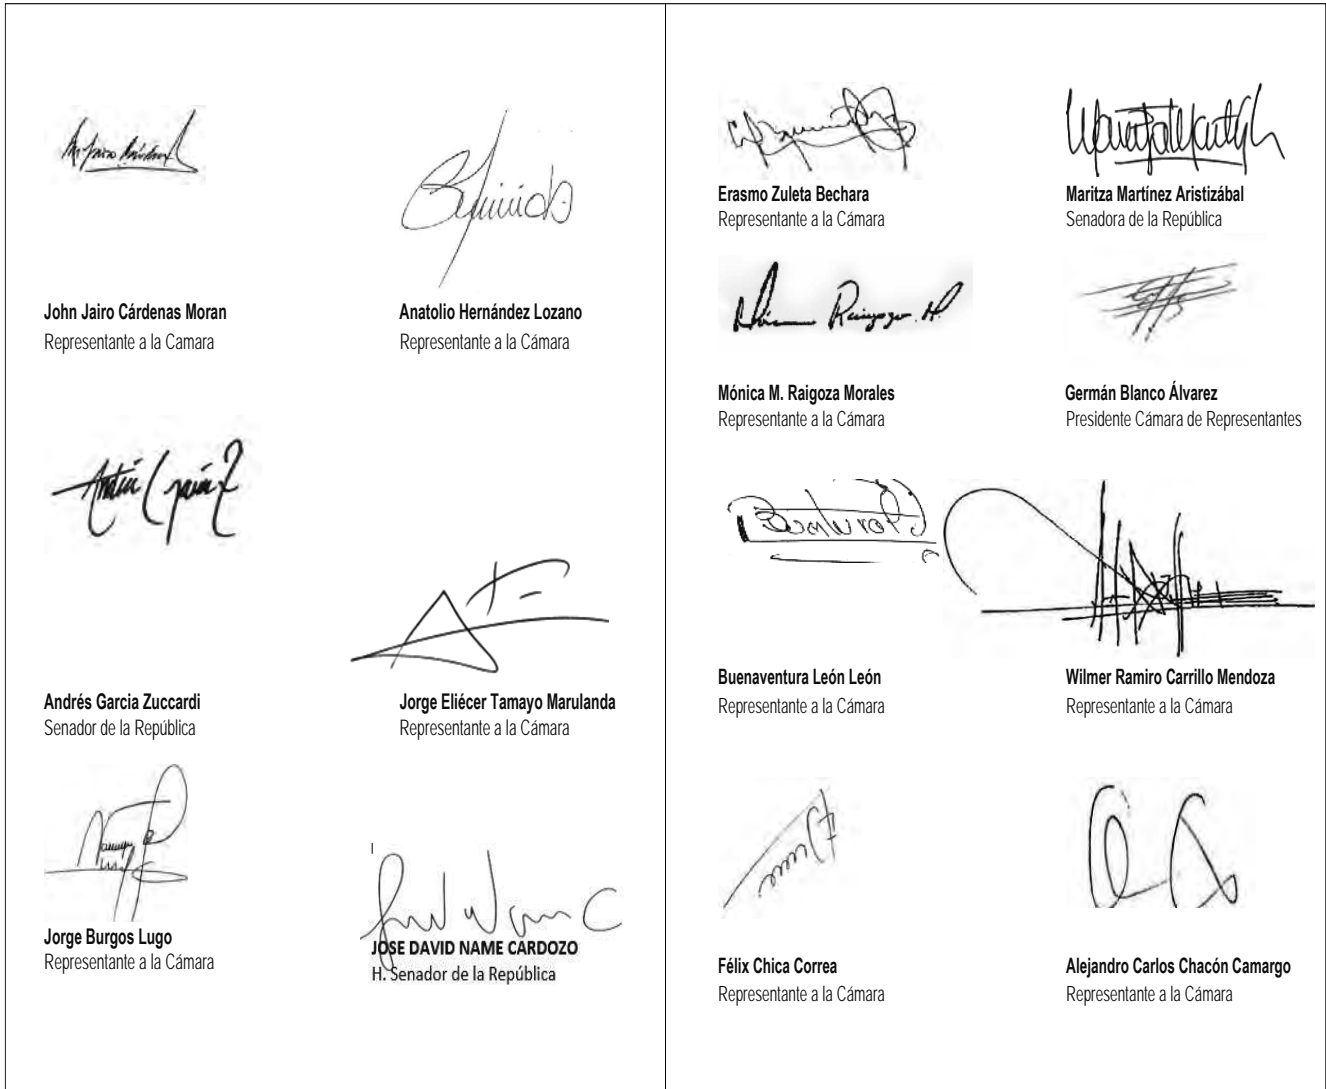 John Jairo Cárdenas Moran
Representante a la Camara
Anatolio Hernández Lozano
Representante a la Cámara
Andrés Garcia Zuccardi
Senador de la República
Jorge Eliécer Tamayo Marulanda
Representante a la Cámara
Jorge Burgos Lugo
Representante a la Cámara
JOSE DAVID NAME CARDOZO
H. Senador de la República
Erasmo Zuleta Bechara
Representante a la Cámara
Maritza Martínez Aristizábal
Senadora de la República
Mónica M. Raigoza Morales
Representante a la Cámara
Germán Blanco Álvarez
Presidente Cámara de Representantes
Buenaventura León León
Representante a la Cámara
Wilmer Ramiro Carrillo Mendoza
Representante a la Cámara
Félix Chica Correa
Representante a la Cámara
Alejandro Carlos Chacón Camargo
Representante a la Cámara